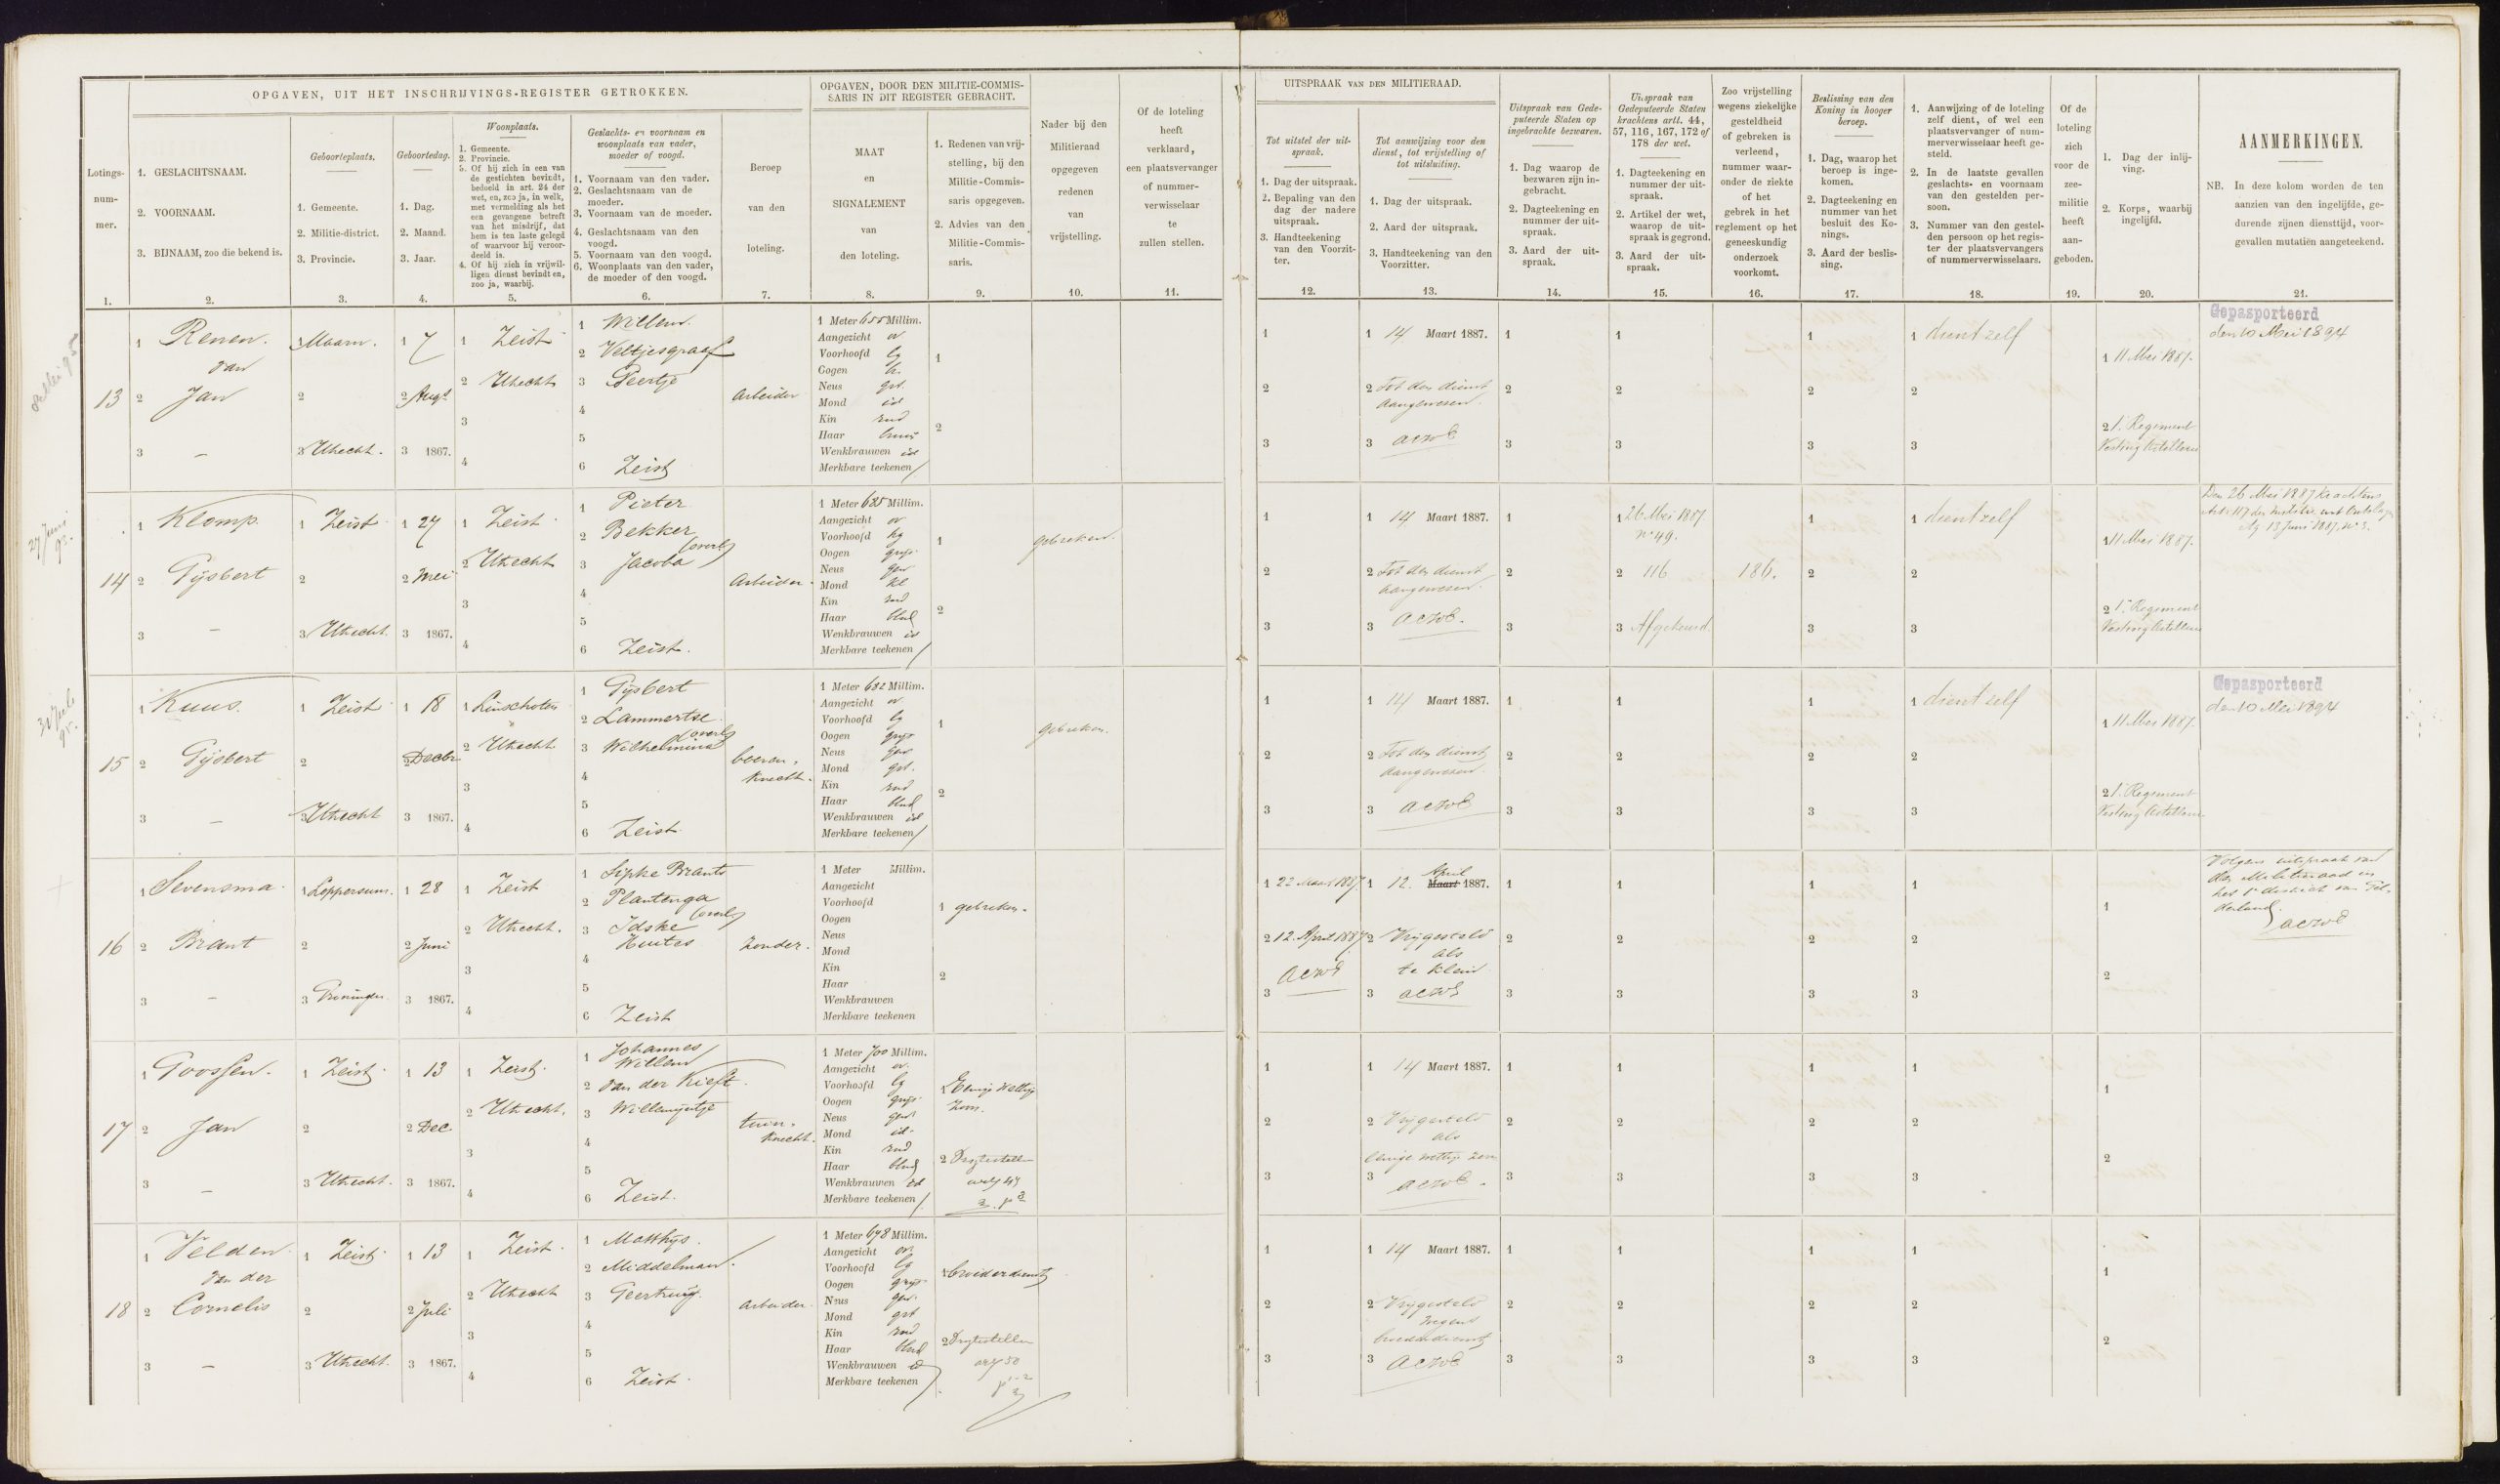 OPGAVEN, UIT HET INSCHRIJVINGS-REGISTER GETROKKEN.
OPGAVEN, DOOR DEN MILITIE-COMMIS-
SARIS IN DIT REGISTER GEBRACHT.
Lotings-
num-
mer.
1.
1. GESLACHTSNAAM.
2. VOORNAAM.
3. BIJNAAM, zoo die bekend is.
2.
Geboorteplaats.
1. Gemeente.
2. Militie-district.
3. Provincie.
3.
Geboortedag.
1. Dag.
2. Maand.
3. Jaar.
4.
Woonplaats.
1. Gemeente.
2. Provincie.
3. Of hij zich in een van
de gestichten bevindt,
bedoeld in art. 24 der
wet, en, zoo ja, in welk,
met vermelding als het
een gevangene betreft
van het misdrijf, dat
hem is ten laste gelegd
of waarvoor hij veroor-
deeld is.
4. Of hij zich in vrijwil-
ligen dienst bevindt en,
zoo ja, waarbij.
5.
Geslachts- en voornaam en
woonplaats van vader,
moeder of voogd.
1. Voornaam van den vader.
2. Geslachtsnaam van de
moeder.
3. Voornaam van de moeder.
4. Geslachtsnaam van den
voogd.
5. Voornaam van den voogd.
6. Woonplaats van den vader,
de moeder of den voogd.
6.
Beroep
van den
loteling.
7.
MAAT
en
SIGNALEMENT
van
den loteling.
8.
1. Redenen van vrij-
stelling, bij den
Militie-Commis-
saris opgegeven.
2. Advies van den
Militie-Commis-
saris.
9.
Nader bij den
Militieraad
opgegeven
redenen
van
vrijstelling.
10.
Of de loteling
heeft
verklaard,
een plaatsvervanger
of nummer-
verwisselaar
te
zullen stellen.
11.
UITSPRAAK VAN DEN MILITIERAAD.
Tot uitstel der uit-
spraak.
1. Dag der uitspraak.
2. Bepaling van den
dag der nadere
uitspraak.
3. Handteekening
van den Voorzit-
ter.
12.
Tot aanwijzing voor den
dienst, tot vrijstelling of
tot uitsluiting.
1. Dag der uitspraak.
2. Aard der uitspraak.
3. Handteekening van den
Voorzitter.
13.
Uitspraak van Gede-
puteerde Staten op
ingebrachte bezwaren.
1. Dag waarop de
bezwaren zijn in-
gebracht.
2. Dagteekening en
nummer der uit-
spraak.
3. Aard der uit-
spraak.
14.
Uitspraak van
Gedeputeerde Staten
krachtens artt. 44,
57, 116, 167, 172 of
178 der wet.
1. Dagteekening en
nummer der uit-
spraak.
2. Artikel der wet,
waarop de uit-
spraak is gegrond.
3. Aard der uit-
spraak.
15.
Zoo vrijstelling
wegens ziekelijke
gesteldheid
of gebreken is
verleend,
nummer waar-
onder de ziekte
of het
gebrek in het
reglement op het
geneeskundig
onderzoek
voorkomt.
16.
Beslissing van den
Koning in hooger
beroep.
1. Dag, waarop het
beroep is inge-
komen.
2. Dagteekening en
nummer van het
besluit des Ko-
nings.
3. Aard der beslis-
sing.
17.
1. Aanwijzing of de loteling
zelf dient, of wel een
plaatsvervanger of num-
merverwisselaar heeft ge-
steld.
2. In de laatste gevallen
geslachts- en voornaam
van den gestelden per-
soon.
3. Nummer van den gestel-
den persoon op het regis-
ter der plaatsvervangers
of nummerverwisselaars.
18.
Of de
loteling
zich
voor de
zee-
militie
heeft
aan-
geboden.
19.
1. Dag der inlij-
ving.
2. Korps, waarbij
ingelijfd.
20.
AANMERKINGEN.
NB. In deze kolom worden de ten
aanzien van den ingelijfde, ge-
durende zijnen diensttijd, voor-
gevallen mutatiën aangeteekend.
21.
13
1 Renen.
van
2 Jan
3 —
1 Maarn.
2
3 Utrecht.
1 7
2 Augt
3 1867.
1 Zeist
2 Utrecht
3
4
1 Willem.
2 Veltjesgraaf
3 Peertje
4
5
6 Zeist
Arbeider
1 Meter 655 Millim.
Aangezicht ov
Voorhoofd lg
Oogen
Neus grt.
Mond id
Kin rnd
Haar bruin
Wenkbrauwen id
Merkbare teekenen /.
1
2
1
2
3
1 14 Maart 1887.
2 Tot den dienst
aangewezen.
3
1 dient zelf
2
3
1 11 Mei 1887.
2 1e Regement
Vesting Artillerie
Gepasporteerd
den 10 Mei 1894
27 Juni
95.
14
1 Klomp.
2 Gijsbert
3 —
1 Zeist
2
3 Utrecht.
1 27
2 Mei
3 1867.
1 Zeist
2 Utrecht
3
4
1 Pieter
2 Bekker
(overl)
3 Jacoba
4
5
6 Zeist.
Arbeider.
1 Meter 625 Millim.
Aangezicht ov
Voorhoofd hg
Oogen grijs
Neus gew
Mond kl
Kin rnd
Haar blnd
Wenkbrauwen id
Merkbare teekenen /
1
2
gebreken.
1 14 Maart 1887.
2 Tot den dienst
aangewezen.
3
1 26 Mei 1887
no 49.
2 116
3 Afgekeurd
186.
1 dient zelf
2
3
1 11 Mei 1887.
2 1e Regement
Vesting Artillerie
Den 26 Mei 1887 Krachtens
Art. 117 der
13 Juni 1887, No 3.
15
1 Kuus.
2 Gijsbert
3 —
1 Zeist
2
3 Utrecht
1 18
2 Decbr
3 1867.
1 Linschoten
2 Utrecht
3
4
1 Gijsbert
2 Lammertse
(overl)
3 Wilhelmina
4
5
6 Zeist.
boeren-
knecht.
1 Meter 682 Millim.
Aangezicht ov
Voorhoofd lg
Oogen grijs
Neus gew
Mond grt.
Kin rnd
Haar blnd
Wenkbrauwen id
Merkbare teekenen /
1
2
gebreken.
1 14 Maart 1887.
2 Tot den dienst
aangewezen.
3
1 dient zelf
2
3
1 11 Mei 1887.
2 1e Regement
Vesting Artillerie
Gepasporteerd
den 10 Mei 1894
16
1 Sevensma.
2 Brant
3 —
1 Leppersum.
2
3 Groningen
1 28
2 Juni
3 1867.
1 Zeist
2 Utrecht.
3
4
1 Sipke Brants
2 Plantenga
(overl)
3 Idske
Huites
4
5
6 Zeist
Zonder.
1 Meter Millim.
Aangezicht
Voorhoofd
Oogen
Neus
Mond
Kin
Haar
Wenkbrauwen
Merkbare teekenen
1 gebreken.
2
1 22 Maart 1887.
2 12. April 1887
3
April
1 12. Maart 1887.
2 Vrijgesteld
als
te klein
3
Volgens uitspraak van
den Militieraad in
het 1e district van Gel-
derland.
17
1 Goossen.
2 Jan
3 —
1 Zeist
2
3 Utrecht.
1 13
2 Dec
3 1867.
1 Zeist.
2 Utrecht.
3
4
1 Johannes
Willem
2 van der Kieft.
3 Willemijntje
4
5
6 Zeist.
tuin-
knecht.
1 Meter 700 Millim.
Aangezicht ov.
Voorhoofd lg
Oogen grijs
Neus gew
Mond id.
Kin rnd
Haar blnd
Wenkbrauwen id
Merkbare teekenen /.
1 Eenige wettige
zoon.
2 Vrijtestellen
1 14 Maart 1887.
2 Vrijgesteld
als
eenige wettige zoon
3
18
1 Velden.
van der
2 Cornelis
3 —
1 Zeist
2
3 Utrecht.
1 13
2 Juli
3 1867.
1 Zeist.
2 Utrecht
3
4
1 Matthijs.
2 Middelman.
3 Geertruij.
4
5
6 Zeist.
Arbeider.
1 Meter 698 Millim.
Aangezicht ov.
Voorhoofd lg
Oogen grijs
Neus gew.
Mond grt
Kin rnd
Haar blnd
Wenkbrauwen id
Merkbare teekenen
1 broederdienst
2 Vrijtestellen
art 50
1 14 Maart 1887.
2 Vrijgesteld
wegens
broederdienst
3